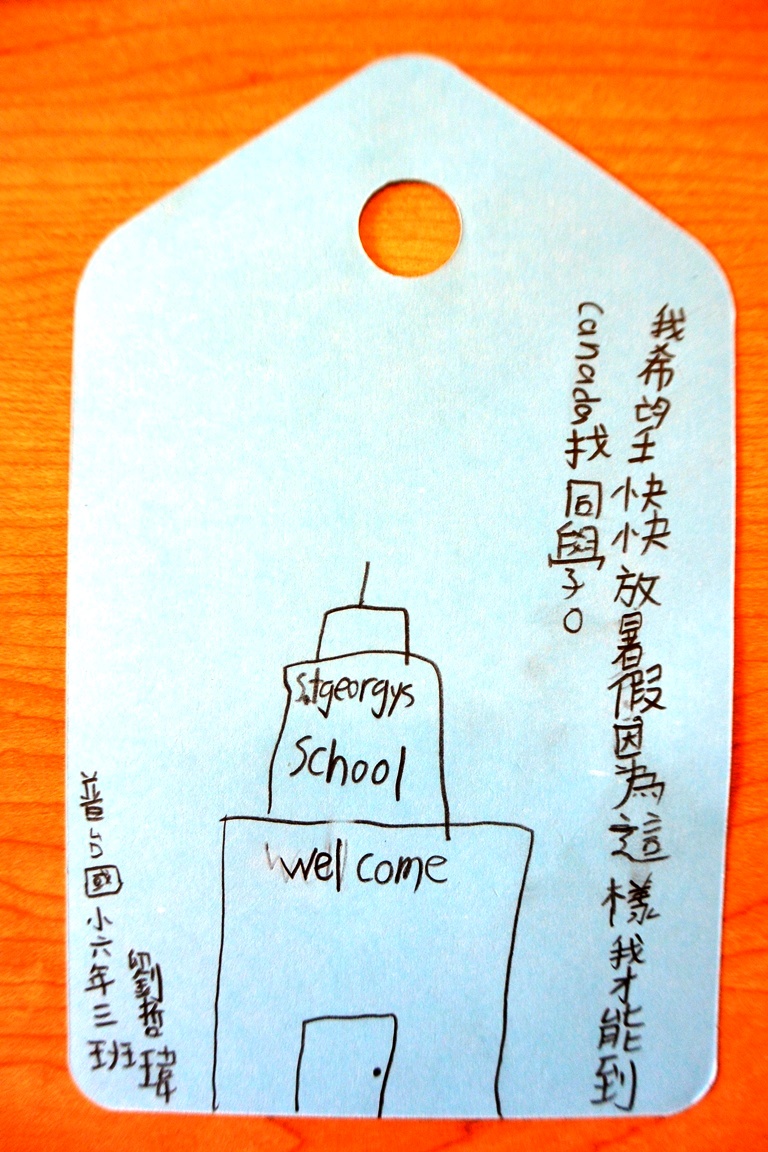 我希望快快放暑假因為這樣我才能到
Canada找同學。
St georgys
School
welcome
劉哲瑋
普台國小六年三班